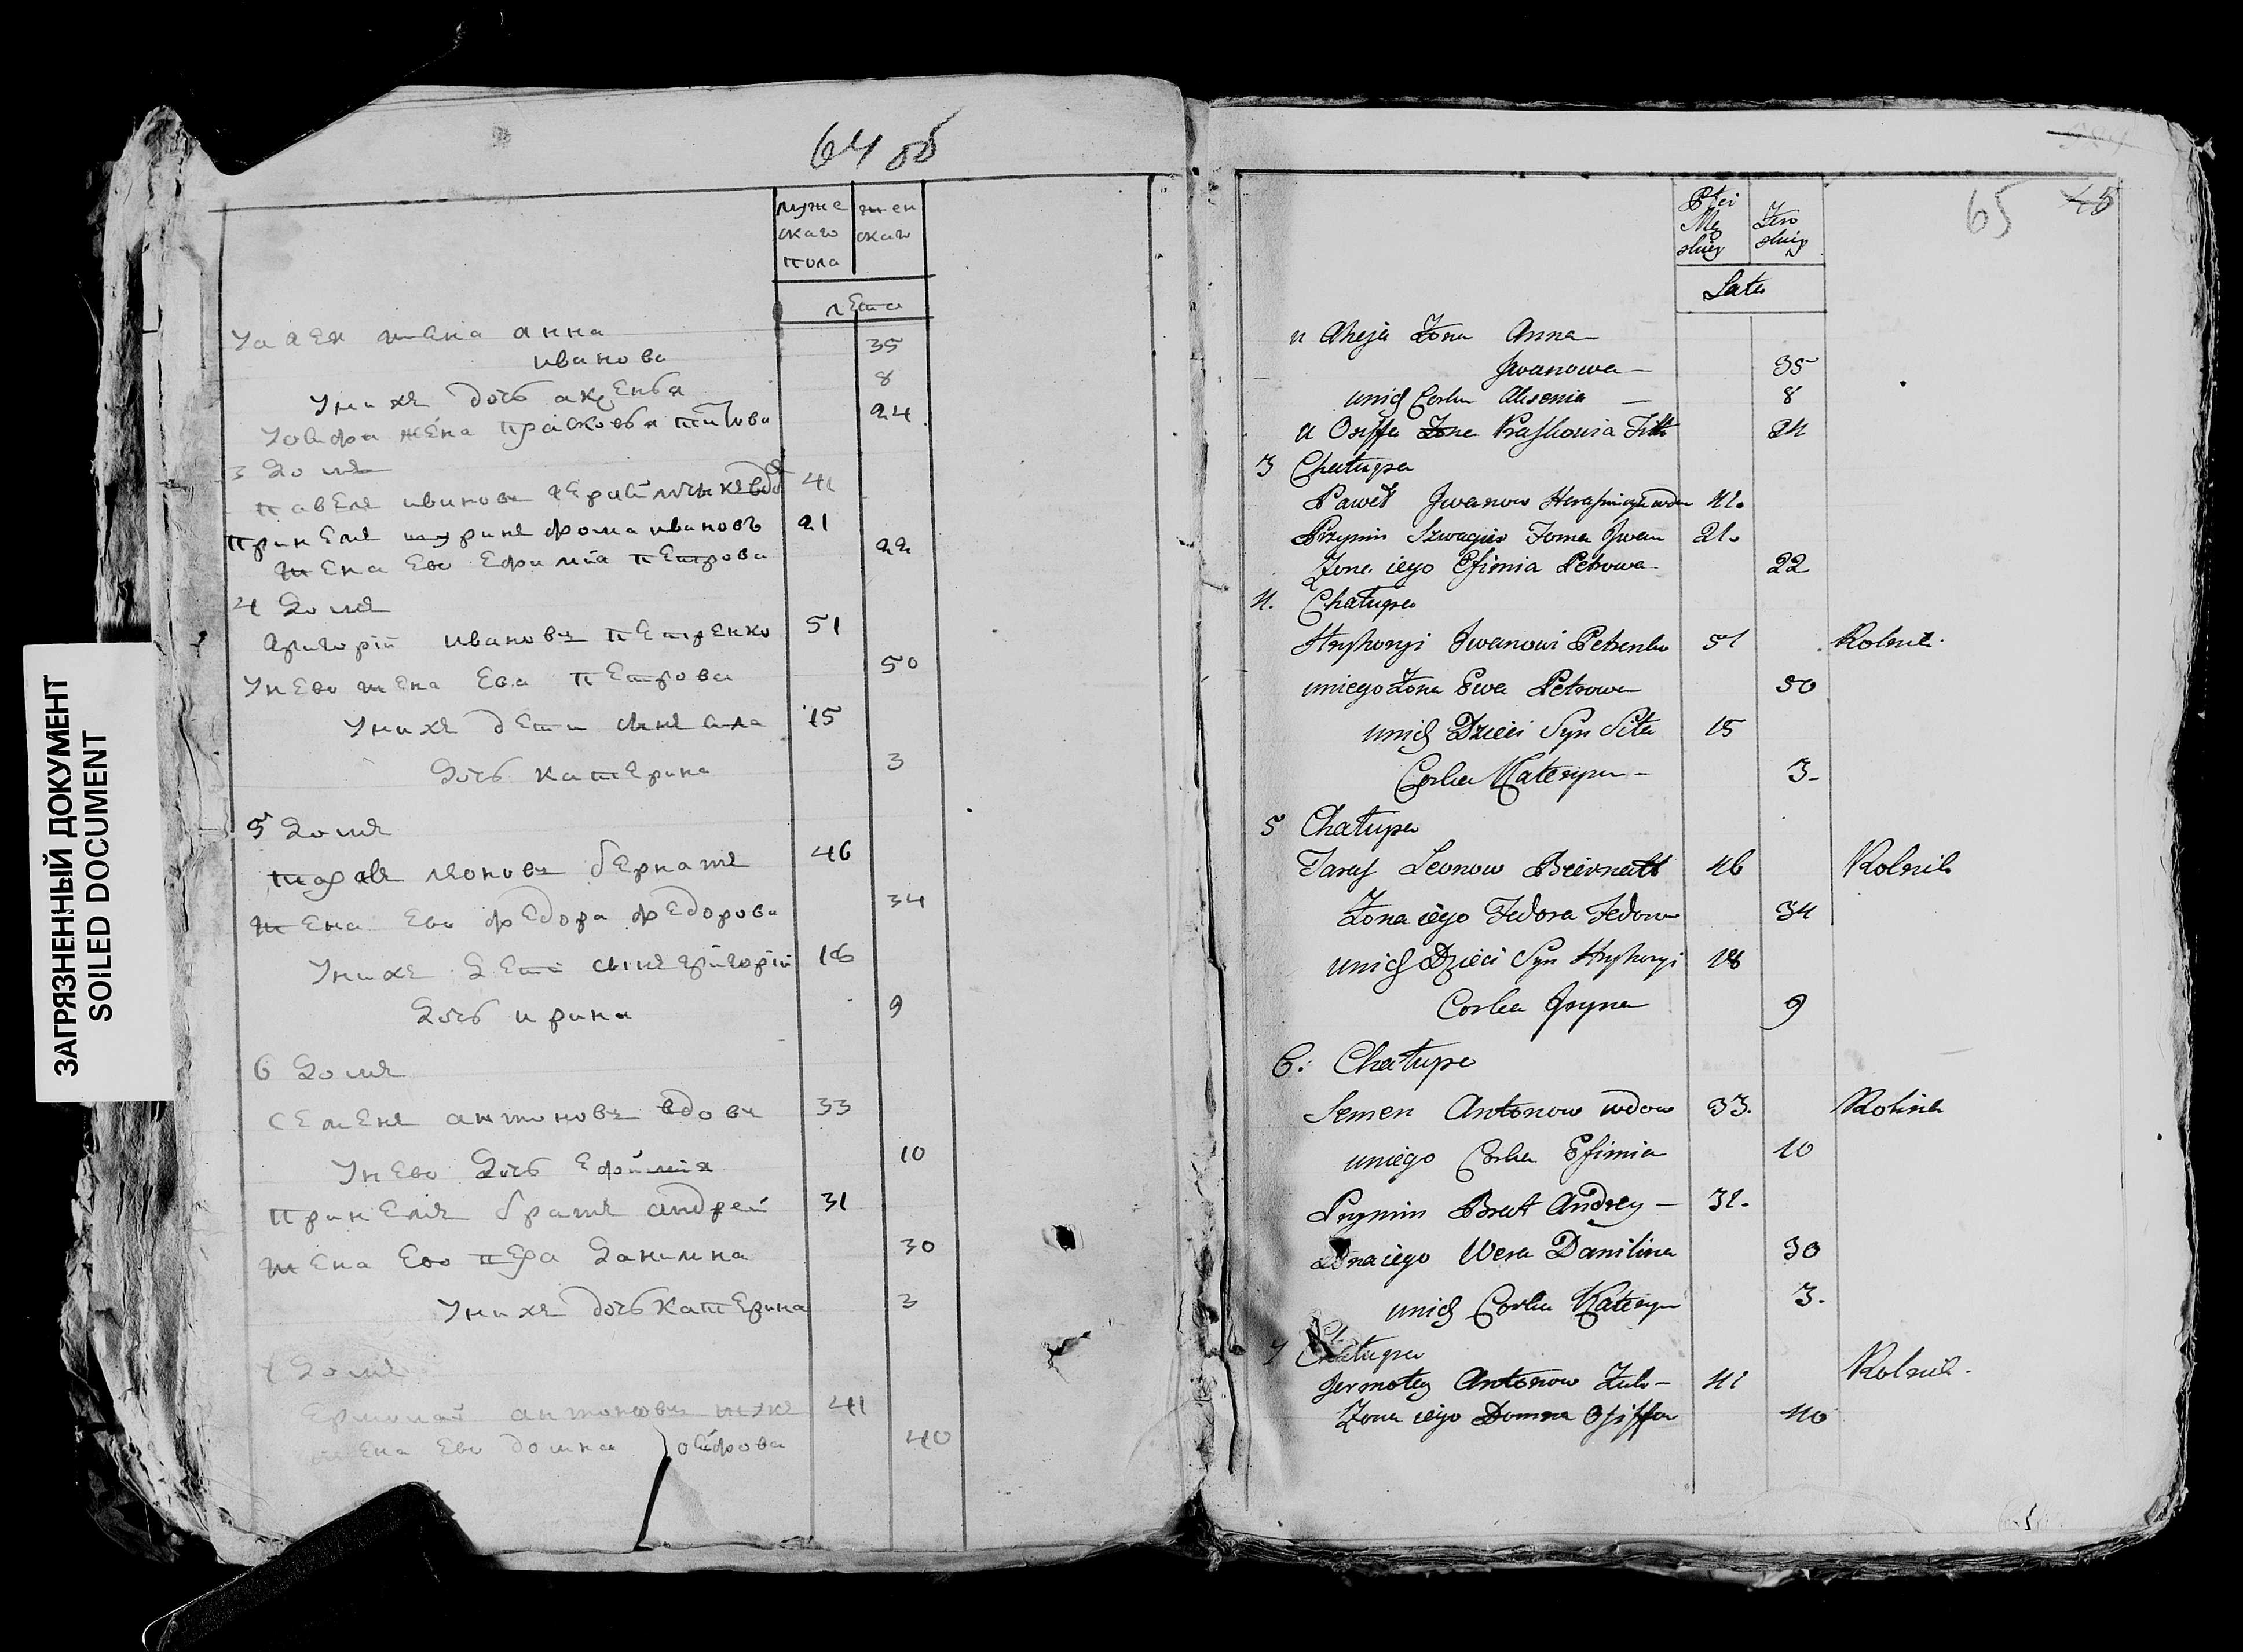 ЗАГРЯЗНЕННЫЙ ДОКУМЕНТ
SOILED DOCUMENT
64 об
муже жен
скаго скаго
пола
лета
жена анна
иванова 35
уних дочь аксенья 8
жена прасковья титова 24
3 домъ
павелъ ивановъ 41
шуринъ фома ивановъ 21
жена ево ефимия петрова 22
4 домъ
григорій ивановъ петренко 51
унево жена ева петрова 50
унихъ дети сынъ 15
дочь катерина 3
5 домъ
тарасъ леоновъ бернатъ 46
жена ево федора федорова 34
унихъ дети сынъ григорій 18
дочь ирина 9
6 домъ
семенъ антоновъ вдовъ 33
унево дочь ефимия 10
братъ андрей 31
жена ево 30
унихъ дочь катерина 3
7 домъ
ермолай антоновъ 41
жена ево домна 40
65 45
Płci
Mę Żen
skiey skiey
Lata
Żona Anna
Jwanowa 35
unich Corka Aksenia 8
u Osiffa Żona Praskowia 24
3 Chałupa
Paweł Jwanow 41.
Szwagier Foma Jwan 21.
Żona iego Efimia Petrowa 22
4. Chałupa
Hryhoryi Jwanow Petrenko 51 Rolnik.
uniego Żona Ewa Petrowa 50
unich Dzieci Syn 15
Corka Kateryna 3
5 Chałupa
Taras Leonow 46 Rolnik
Żona iego Fedora Fedorow 34
unich Dzieci Syn Hryhoryi 18
Corka Jryna 9
6. Chałupa
Semen Antonow wdow 33. Rolnik
uniego Corka Efimia 10
Brat Andrey 31.
Żona iego Wera Danilina 30
unich Corka Kateryn 3.
7 Chałupa
Jermołay Antonow 41 Rolnik.
Żona iego Domna 40